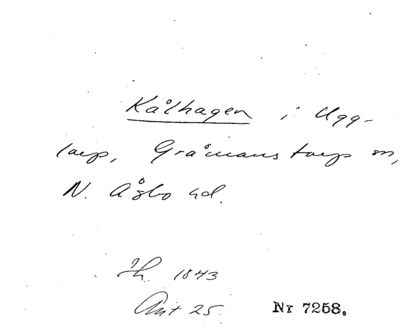 Kålhagen i Ugg-
larp, Gråmanstorps sn,
N. Åsbo hd.
Th. 1843
Ant 25 Nr 7258.